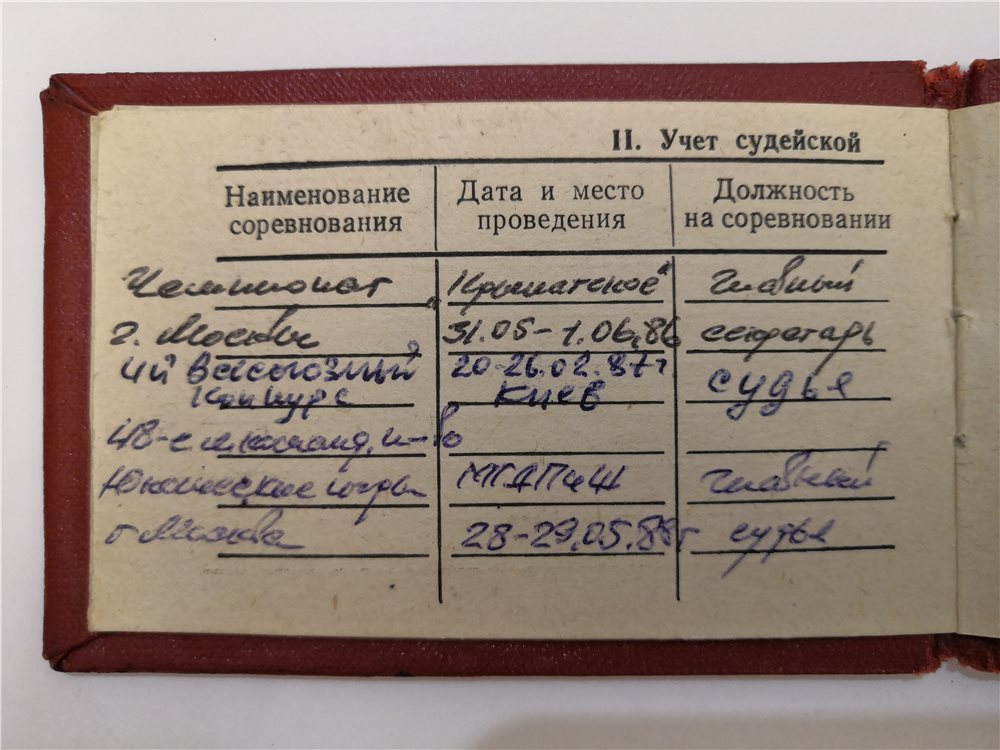 II. Учет судейской
Наименование соревнования
Дата и место проведения
Должность на соревновании
Чемпионат
"Крылатское"
Главный
г. Москвы
31.05-1.06.86
секретарь
4й Всесоюзный
20-26.02.87г
Конкурс
Киев
судья
Юношеские игры
МГДПиШ
Главный
г Москва
28-29.05.88г
судья